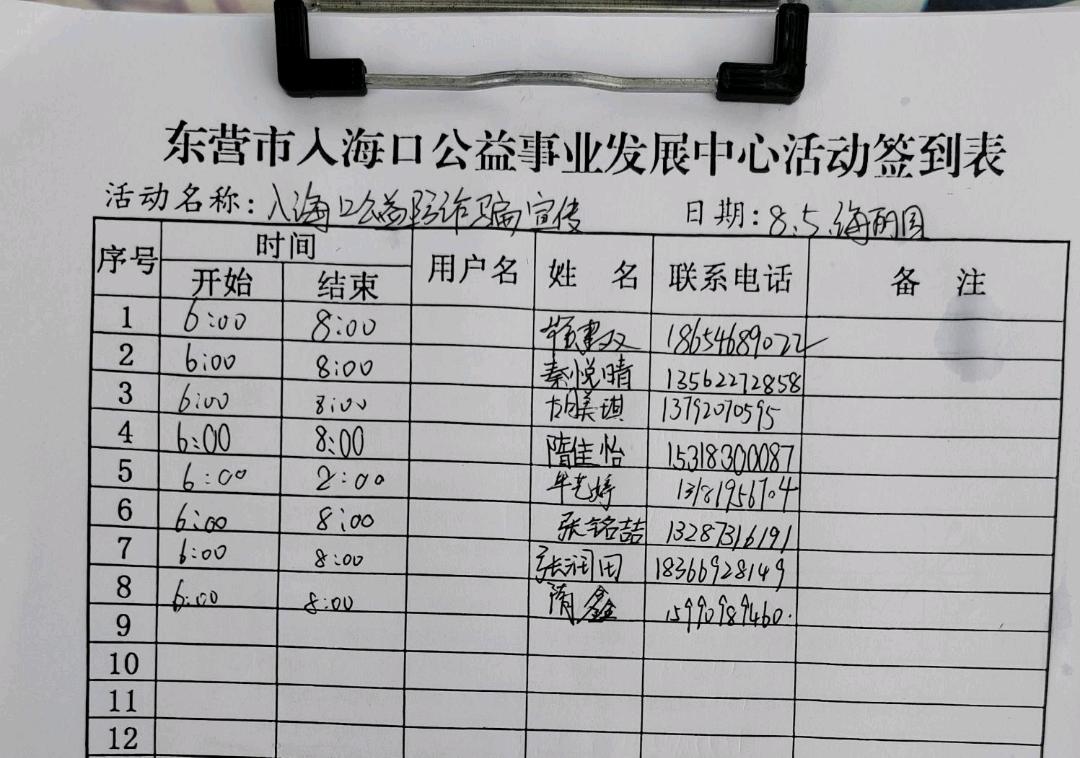 东营市入海口公益事业发展中心活动签到表
活动名称:入海口公益防诈骗宣传 日期:8.5.海丽园
序号 时间 用户名 姓 名 联系电话 备 注
开始 结束
1 6:00 8:00 18654689022
2 6:00 8:00 秦悦晴 13562272858
3 6:00 8:00 胡美琪 13792070595
4 6:00 8:00 隋佳怡 15318300087
5 6:00 2:00 牟艺婷 13181956704
6 6:00 8:00 张铭喆 13287316191
7 6:00 8:00 张润田 18366928149
8 6:00 8:00 隋鑫 15990989460.
9
10
11
12